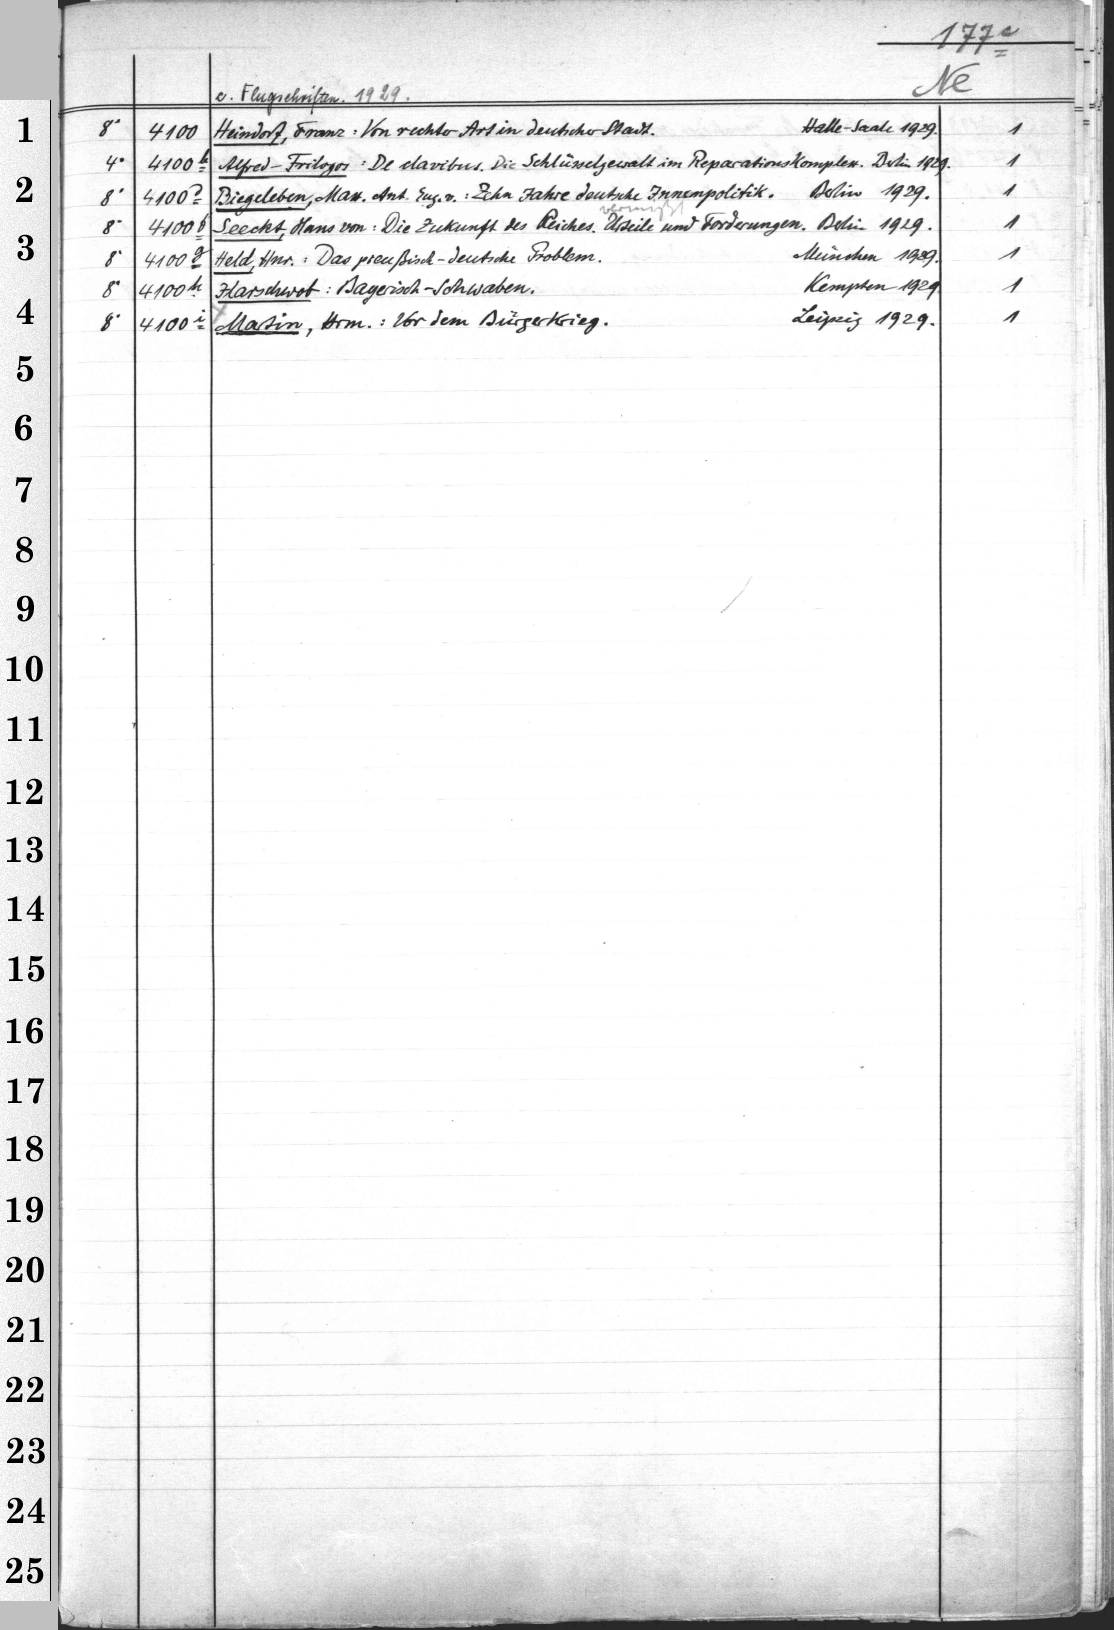 177c
Ne
c. Flugschriften. 1929.
1
8° 4100 Heindorf, Franz: Von rechter Art in deutscher Stadt. Halle-Saale 1929. 1
4° 4100 k Alfred-Frilogos: De clavibus. Die Schlüsselgewalt im Reparationskomplex. Berlin 1929. 1
2
8° 4100 Biegeleben, Max. Ant. Eug. v.: Zehn Jahre deutsche Innenpolitik. Berlin 1929. 1
vermißt
8° 4100 f Seeckt, Hans von: Die Zukunft des Reiches. Urteile und Forderungen. Berlin 1929. 1
3
8° 4100 g Held, Hnr.: Das preußisch-deutsche Problem. München 1929. 1
8° 4100 h Harschwob: Bayerisch-Schwaben. Kempten 1929 1
4
8° 4100 i Martin, Hrm.: Vor dem Bürgerkrieg. Leipzig 1929. 1
5
6
7
8
9
10
11
12
13
14
15
16
17
18
19
20
21
22
23
24
25